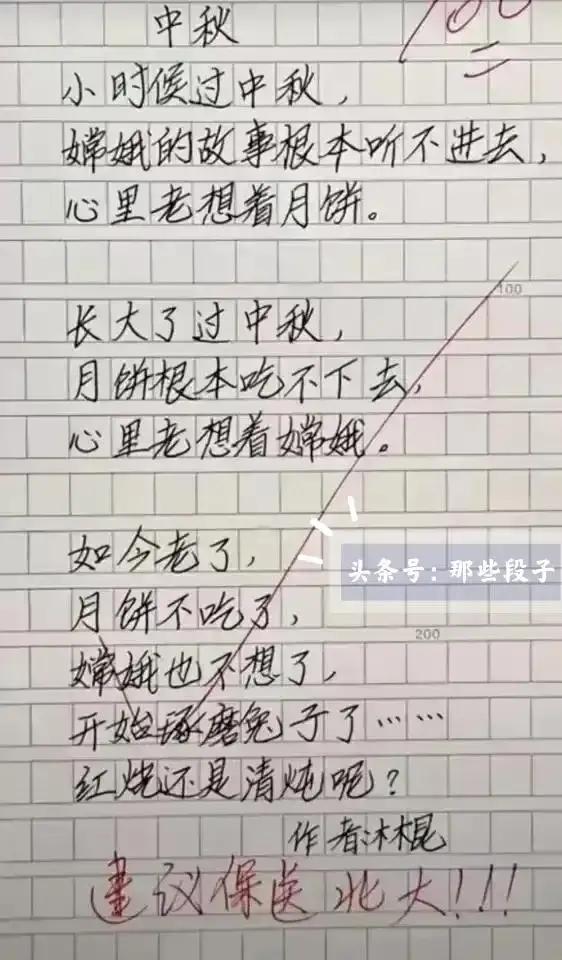 中秋
100
小时候过中秋，
嫦娥的故事根本听不进去，
心里老想着月饼。
100
长大了过中秋，
月饼根本吃不下去，
心里老想着嫦娥。
如今老了，
头条号：那些段子
月饼不吃了，
200
嫦娥也不想了，
开始琢磨兔子了……
红烧还是清炖呢？
作者沐棍
建议保送北大!!!